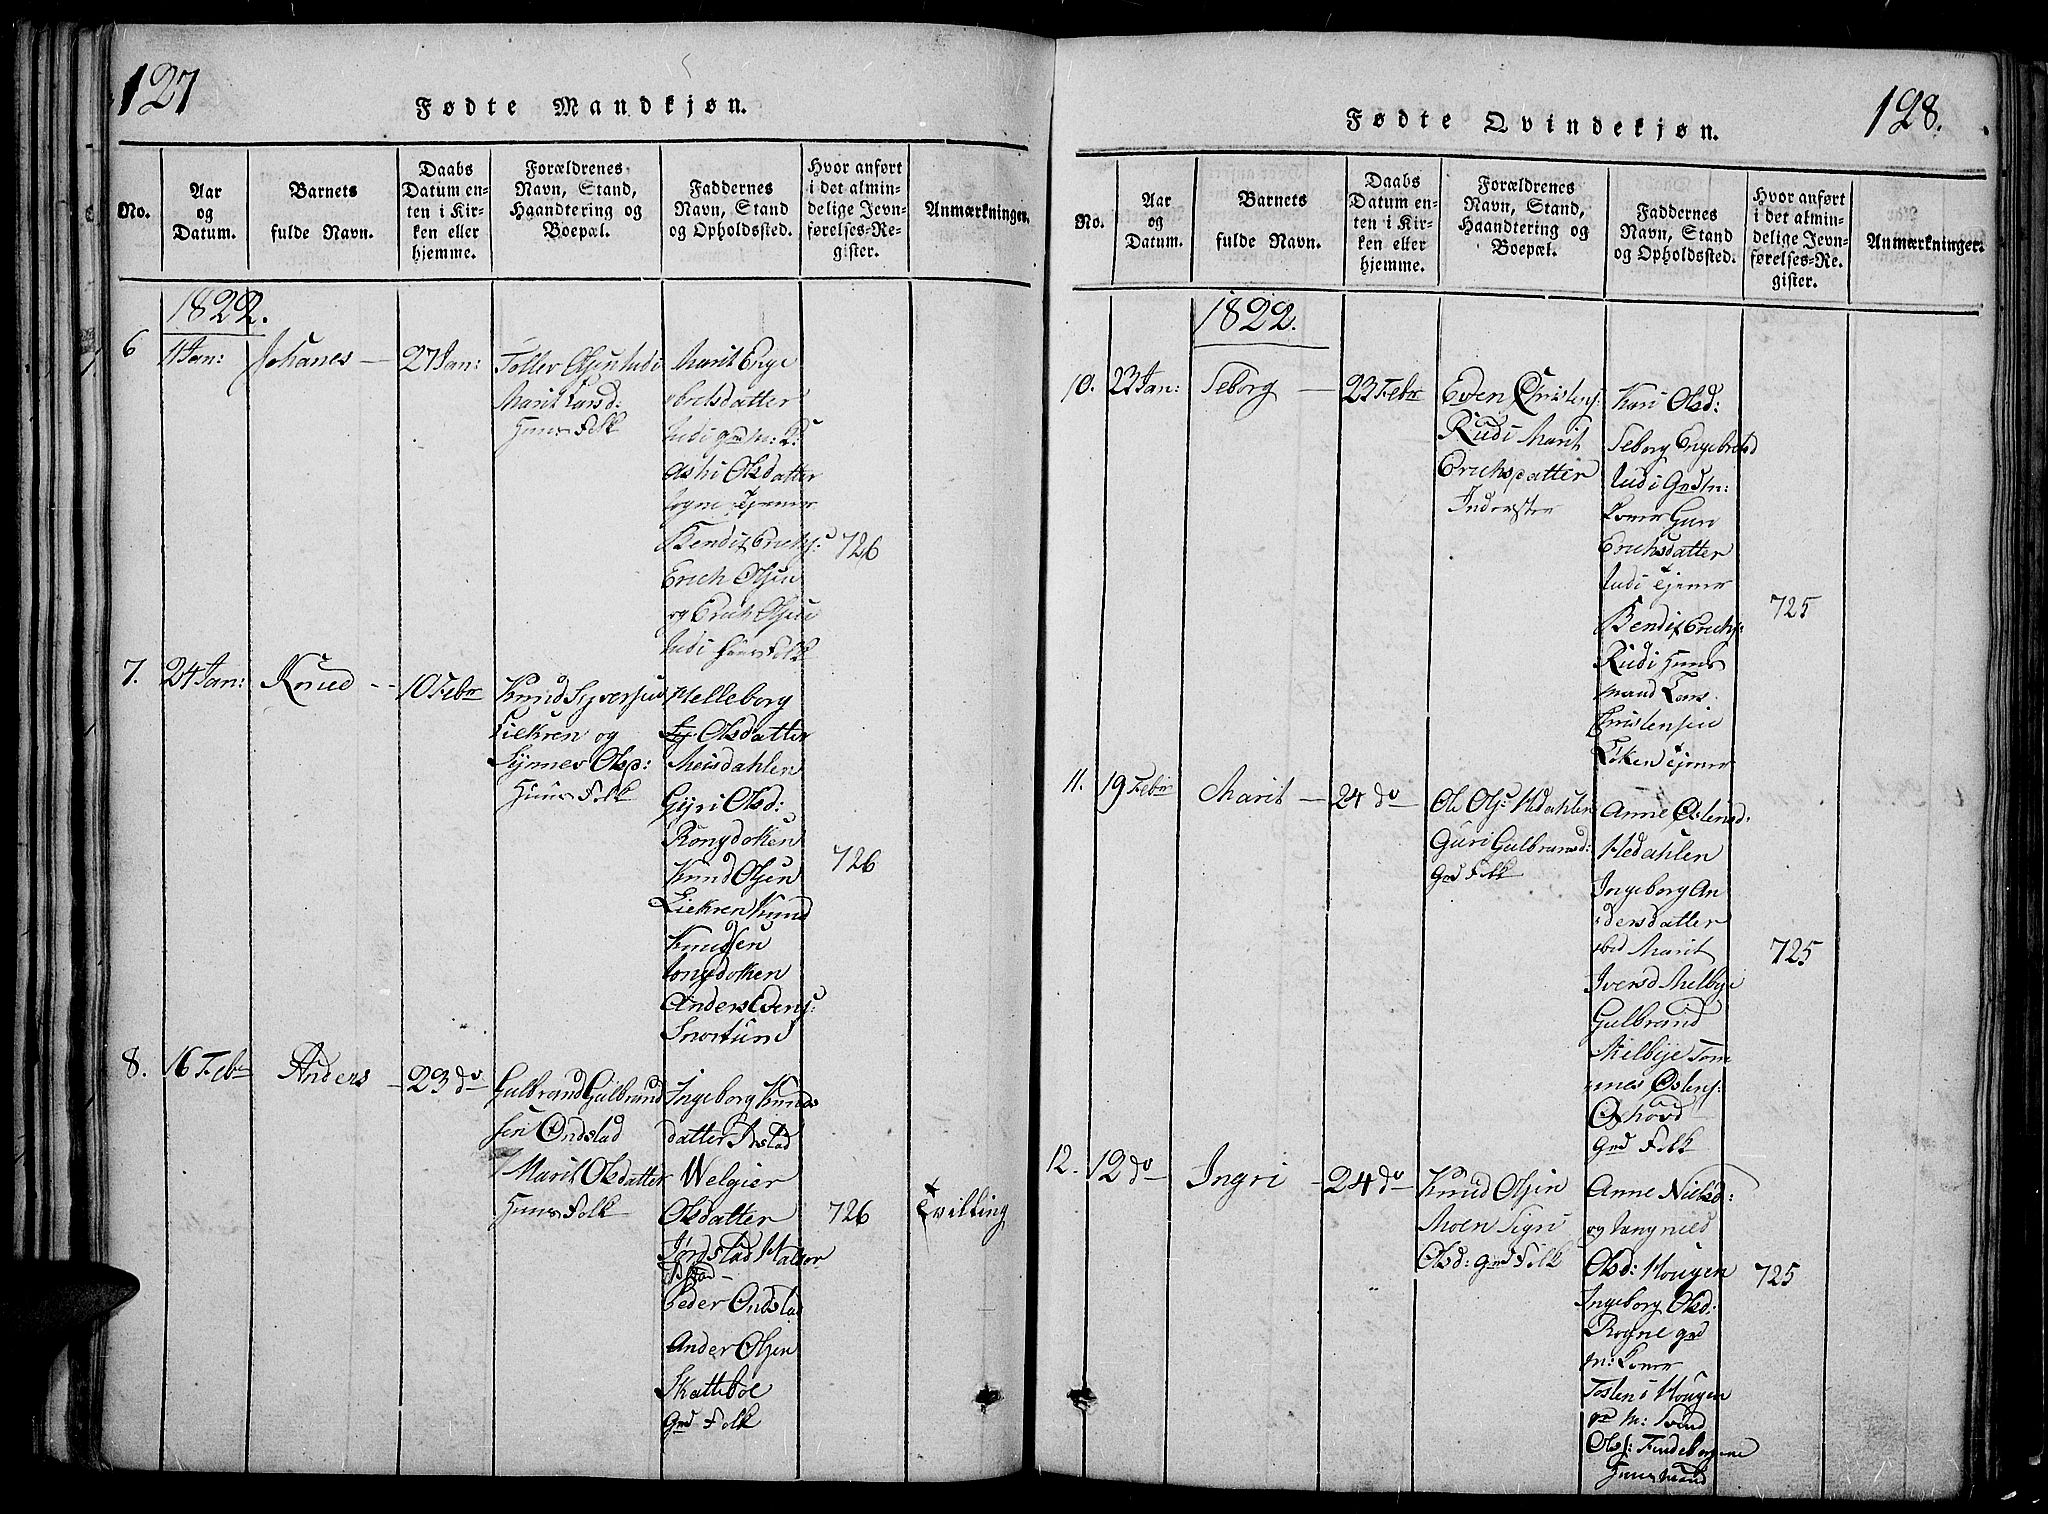 127
Fødte Mandkjøn.
No.
Aar
og
Datum.
Barnets
fulde Navn.
Daabs
Datum en-
ten i Kir-
ken eller
hjemme.
Forældrenes
Navn, Stand,
Haandtering og
Boepæl.
Faddernes
Navn, Stand
og Opholdssted.
Hvor anført
i det almin-
delige Jevn-
førelses-Re-
gister.
Anmærkninger.
1822.
6
11 Jan:
Johanes
27 Jan:
Toller Olsen
Marit Larsd:
Huus Folk
Marit Enge
bretsdatter
Olsdatter
Tjener
Bendit Erichs:
Erich Olsen
og Erich Olsen
Huus Folk
726
7.
24 Jan:
Knud
10 Febr
Knud Syversen
Liekren og
Huus Folk
Helleborg
Olsdatter
Meisdahlen
Gyri Olsd:
Rongdokken
Knud Olsen
Liekren Knud
Knudsen
Rongdokken
Anders Evens:
Snortum
726
8.
16 Febr
Anders
23 do
Gulbrand Gulbrand
sen Ondstad
Marit Olsdatter
Huus Folk
Ingeborg Knuds
datter
Welgier
Olsdatter
Jørstad Haldor
Peder Ondstad
Ander Olsen
Skatteboe
Grd Folk
726
Tvilling
128.
Fødte Qvindekjøn.
No.
Aar
og
Datum.
Barnets
fulde Navn.
Daabs
Datum en-
ten i Kir-
ken eller
hjemme.
Forældrenes
Navn, Stand,
Haandtering og
Boepæl.
Faddernes
Navn, Stand
og Opholdssted.
Hvor anført
i det almin-
delige Jevn-
førelses-Re-
gister.
Anmærkninger.
1822.
10.
23 Jan:
Seborg
23 Febr
Even Christens:
Rudi Marit
Erichsdatter
Inderster
Kari Olsd:
Seborg Engebretsd
Rudi Grdm:
Koner Guri
Erichsdatter
Rudi Tjener
Bendit Erichs:
Rudi Huus
mand Lars
Christensen
Løken Tjener
725
11.
19 Febr
Marit
24 do
Ole Ols: Hedahlen
Guri Gulbransd:
Grd Folk
Anne Østensd:
Hedahlen
Ingeborg An
dersdatter
ibid Marit
Iversd Melbye
Gulbrand
Melbye Tom
mes Østens:
Grd Folk
725
12.
12 do
Ingri
24 do
Knud Olsen
Moen Sigri
Olsd: Grd Folk
Anne Nielsd:
og Rangnild
Olsd: Hougen
Ingeborg Olsd:
Rogne grd
m: Koner
Tosten Hougen
gr m: Svend
Ols:
Huusmand
725